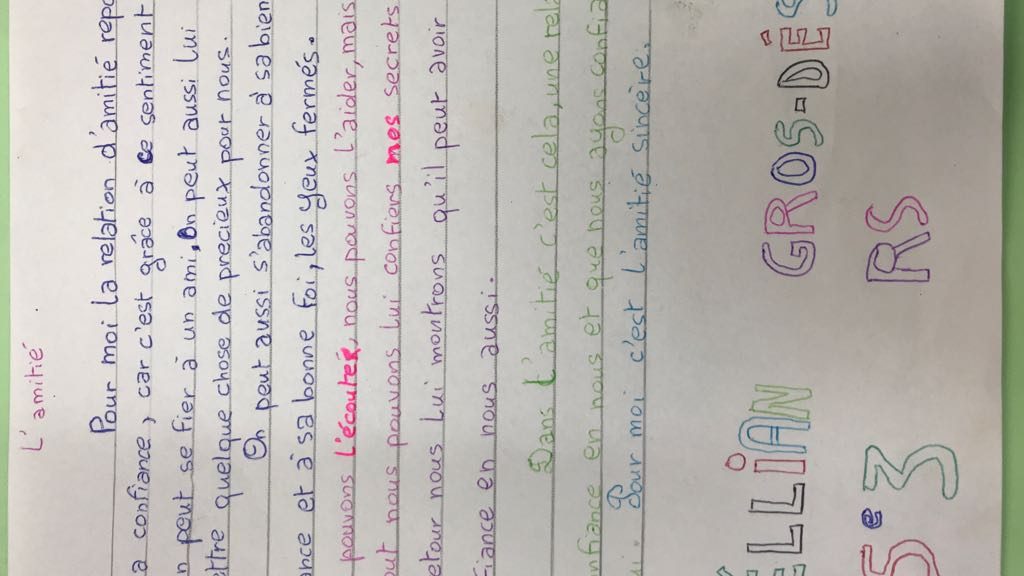 L'amitié
Pour moi la relation d'amitié repo
a confiance, car c'est grâce à ce sentiment
n peut se fier à un ami, On peut aussi lui
ettre quelque chose de precieux pour nous.
On peut aussi s'abandonner à sa bien
ance et à sa bonne foi, les yeux fermés.
pouvons l'écouter, nous pouvons l'aider, mais
out nous pouvons lui confiers mes secrets
etour nous lui montrons qu'il peut avoir
fiance en nous aussi.
Dans l'amitié c'est cela, une rela
nfiance en nous et que nous ayons confia
ui. Pour moi c'est l'amitié sincère.
ÉLLiAN GROS-DÉS
5e3 RS